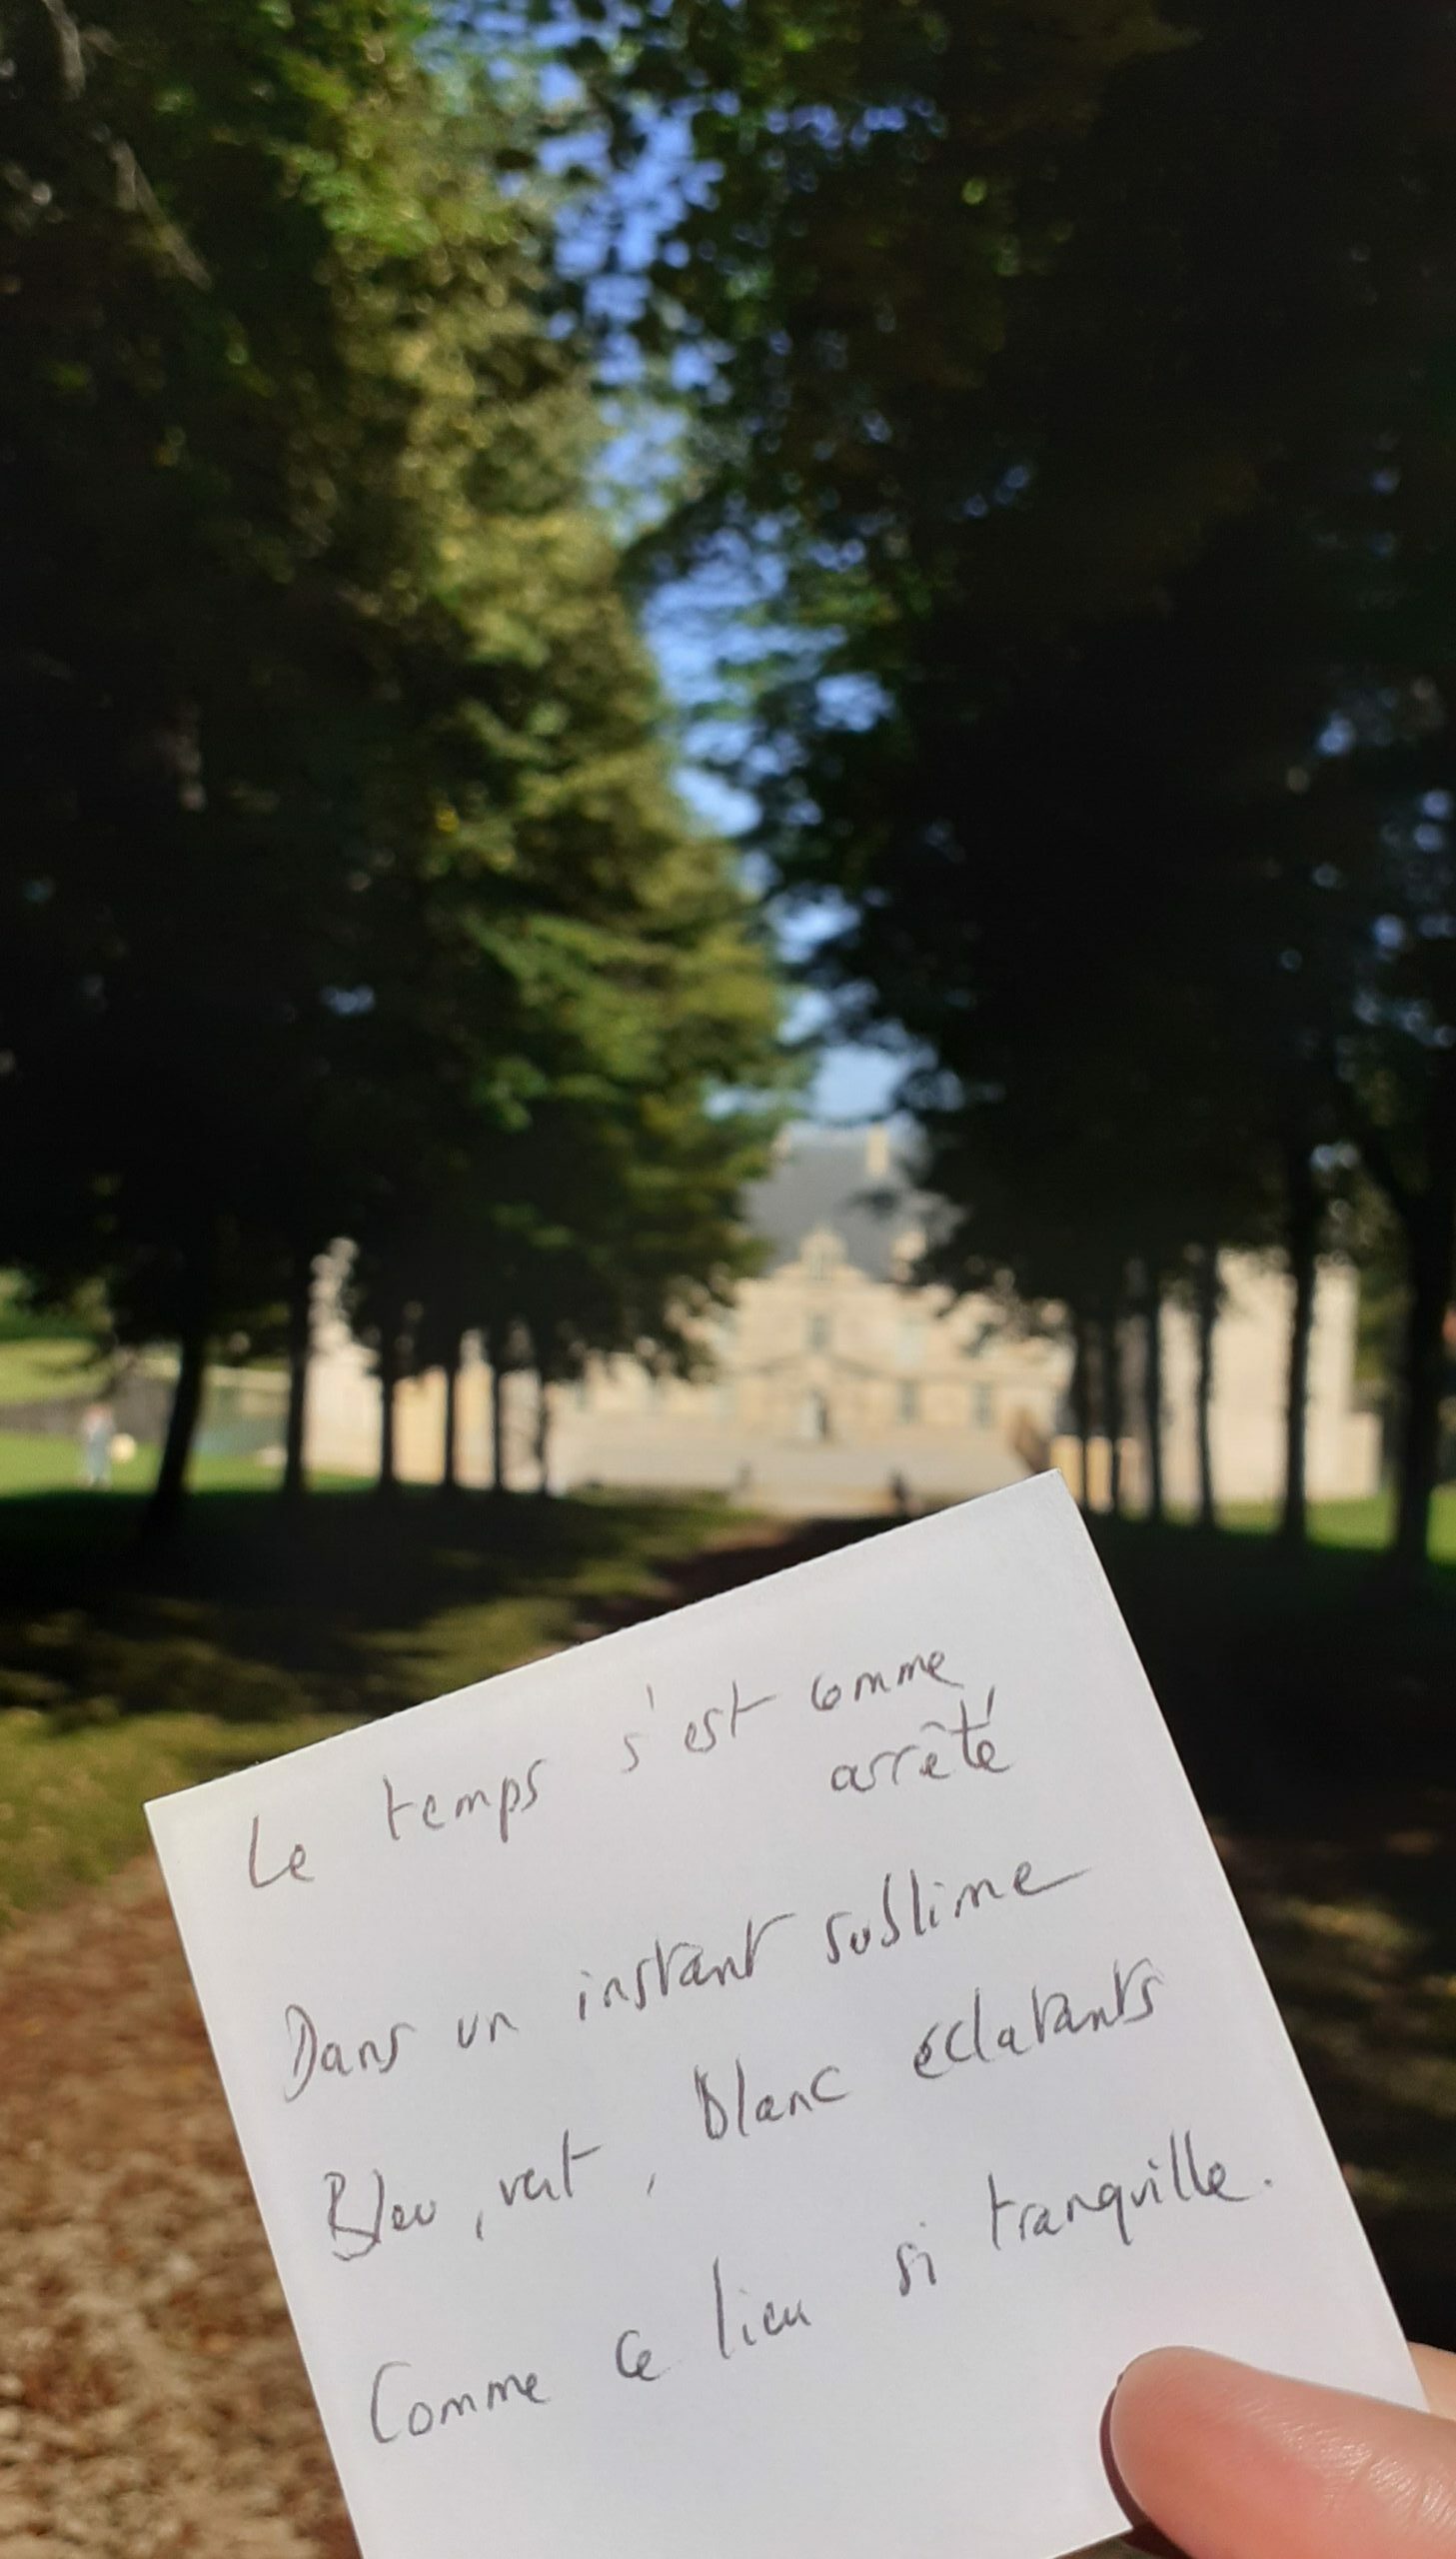 Le temps s'est comme
arrêté
Dans un instant sublime
Bleu, vert, blanc éclatants
Comme ce lieu si tranquille.